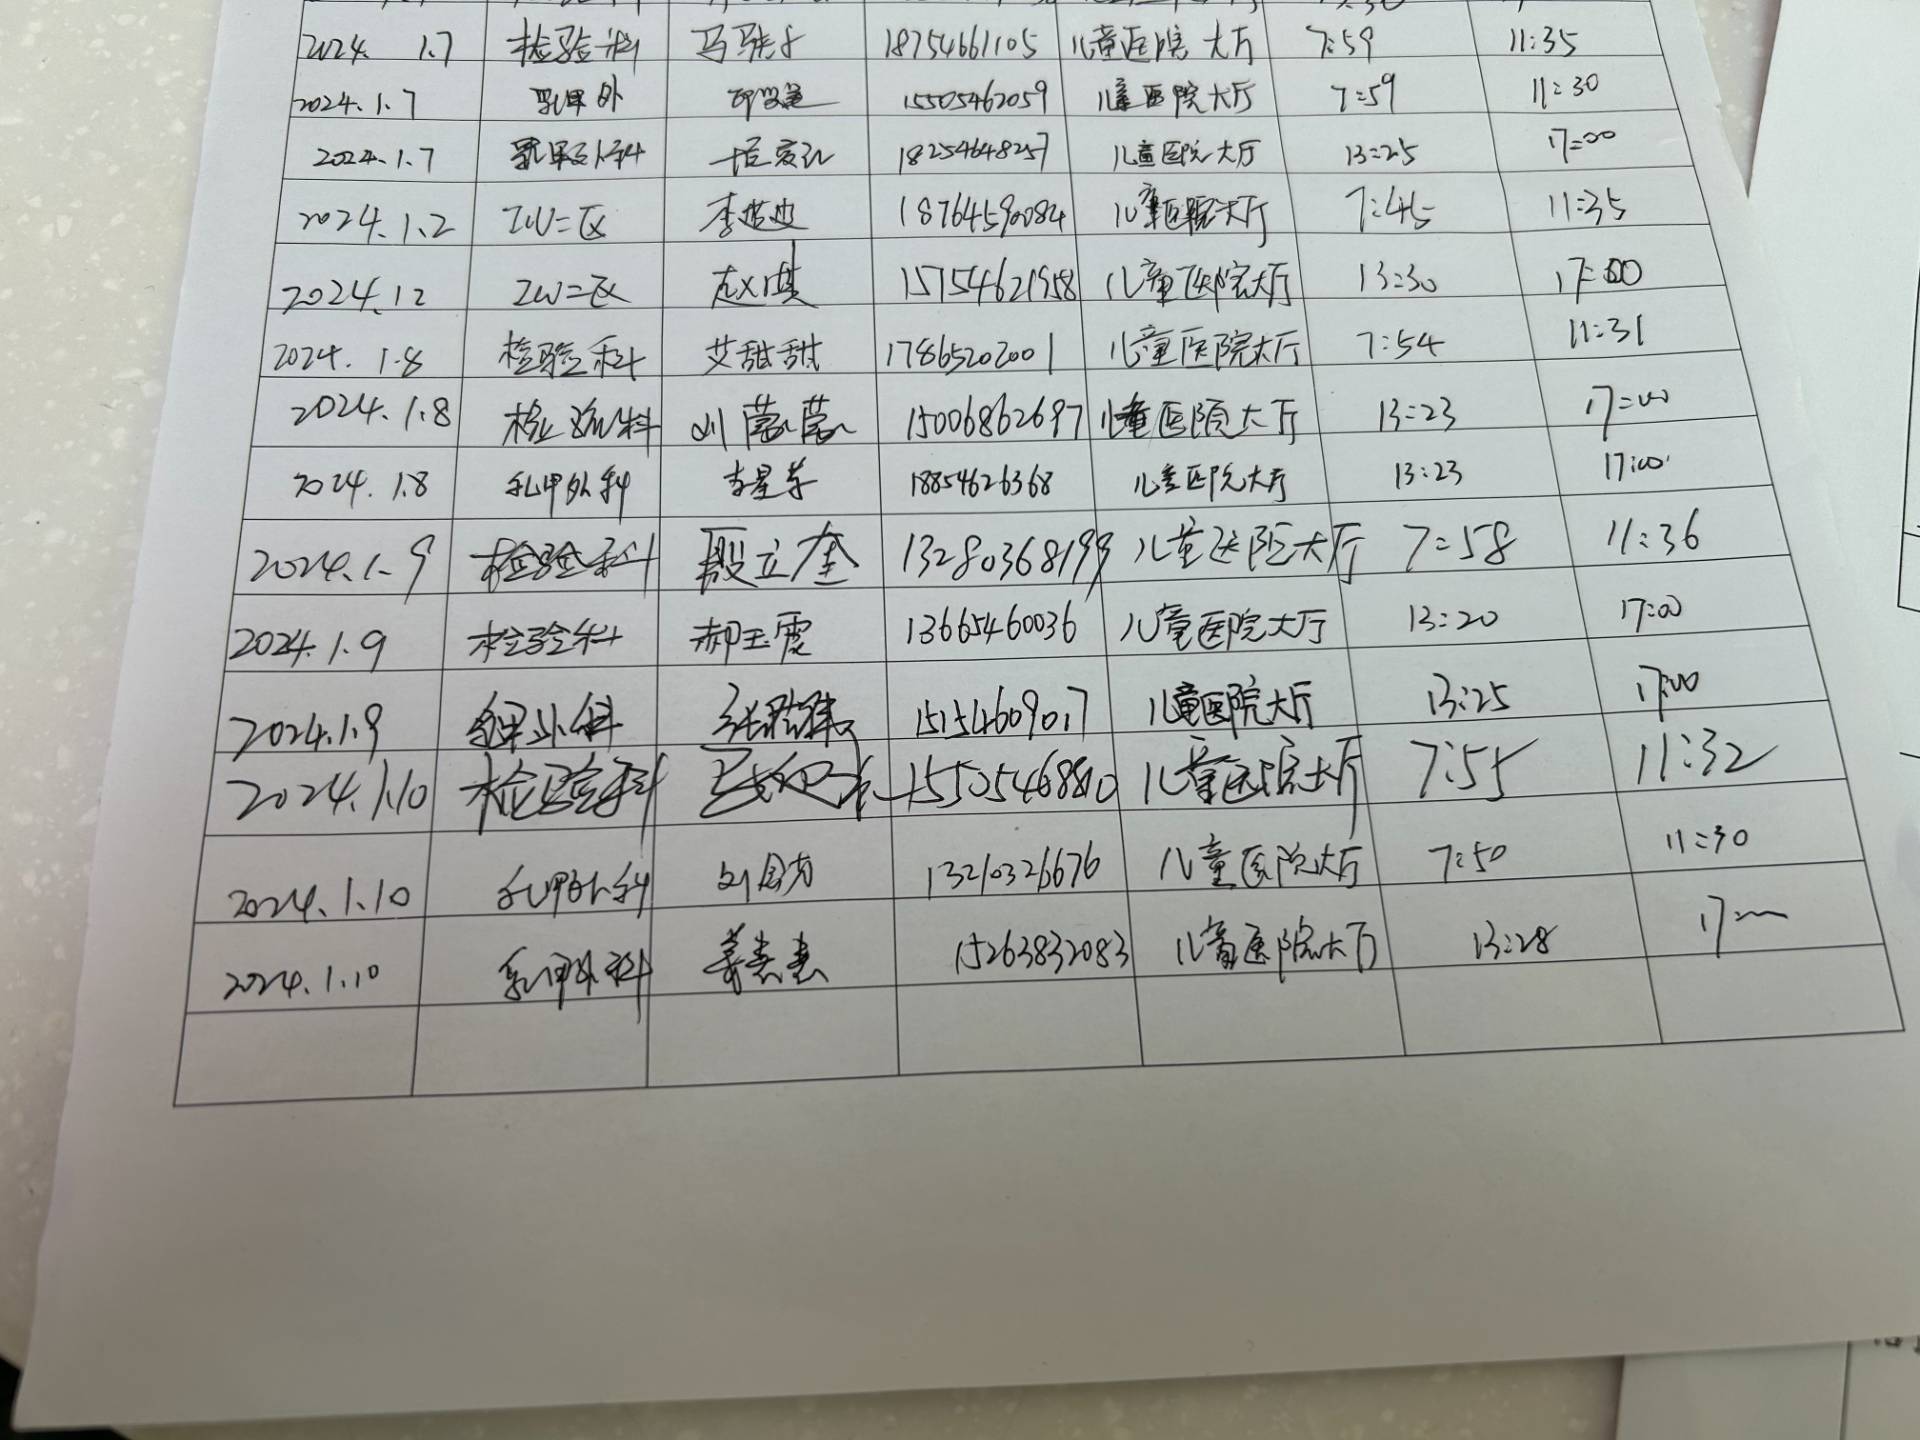 2024. 1.7 检验科 18754661105 儿童医院大厅 7:59 11:35
2024.1.7 乳甲外 15505462059 儿童医院大厅 7:59 11:30
2024.1.7 乳甲外科 18254648257 儿童医院大厅 13:25 17:00
2024.1.2 ICU=区 李 18764590084 儿童医院大厅 7:45 11:35
2024.12 ICU=区 赵琪 15754621958 儿童医院大厅 13:30 17:00
2024. 1.8 检验科 艾甜甜 17865202001 儿童医院大厅 7:54 11:31
2024. 1.8 检验科 刘蒙蒙 15006862697 儿童医院大厅 13:23 17:00
2024. 1.8 乳甲外科 李星 18854626368 儿童医院大厅 13:23 17:00
2024.1.9 检验科 殷立奎 13280368199 儿童医院大厅 7:58 11:36
2024.1.9 检验科 郝玉震 13665460036 儿童医院大厅 13:20 17:00
2024.1.9 甲外科 15154609017 儿童医院大厅 13:25 17:00
2024.1.10 检验科 15505468810 儿童医院大厅 7:55 11:32
2024.1.10 乳甲外科 刘 13210326676 儿童医院大厅 7:50 11:30
2024.1.10 乳甲外科 姜惠惠 15263832083 儿童医院大厅 13:28 17:00